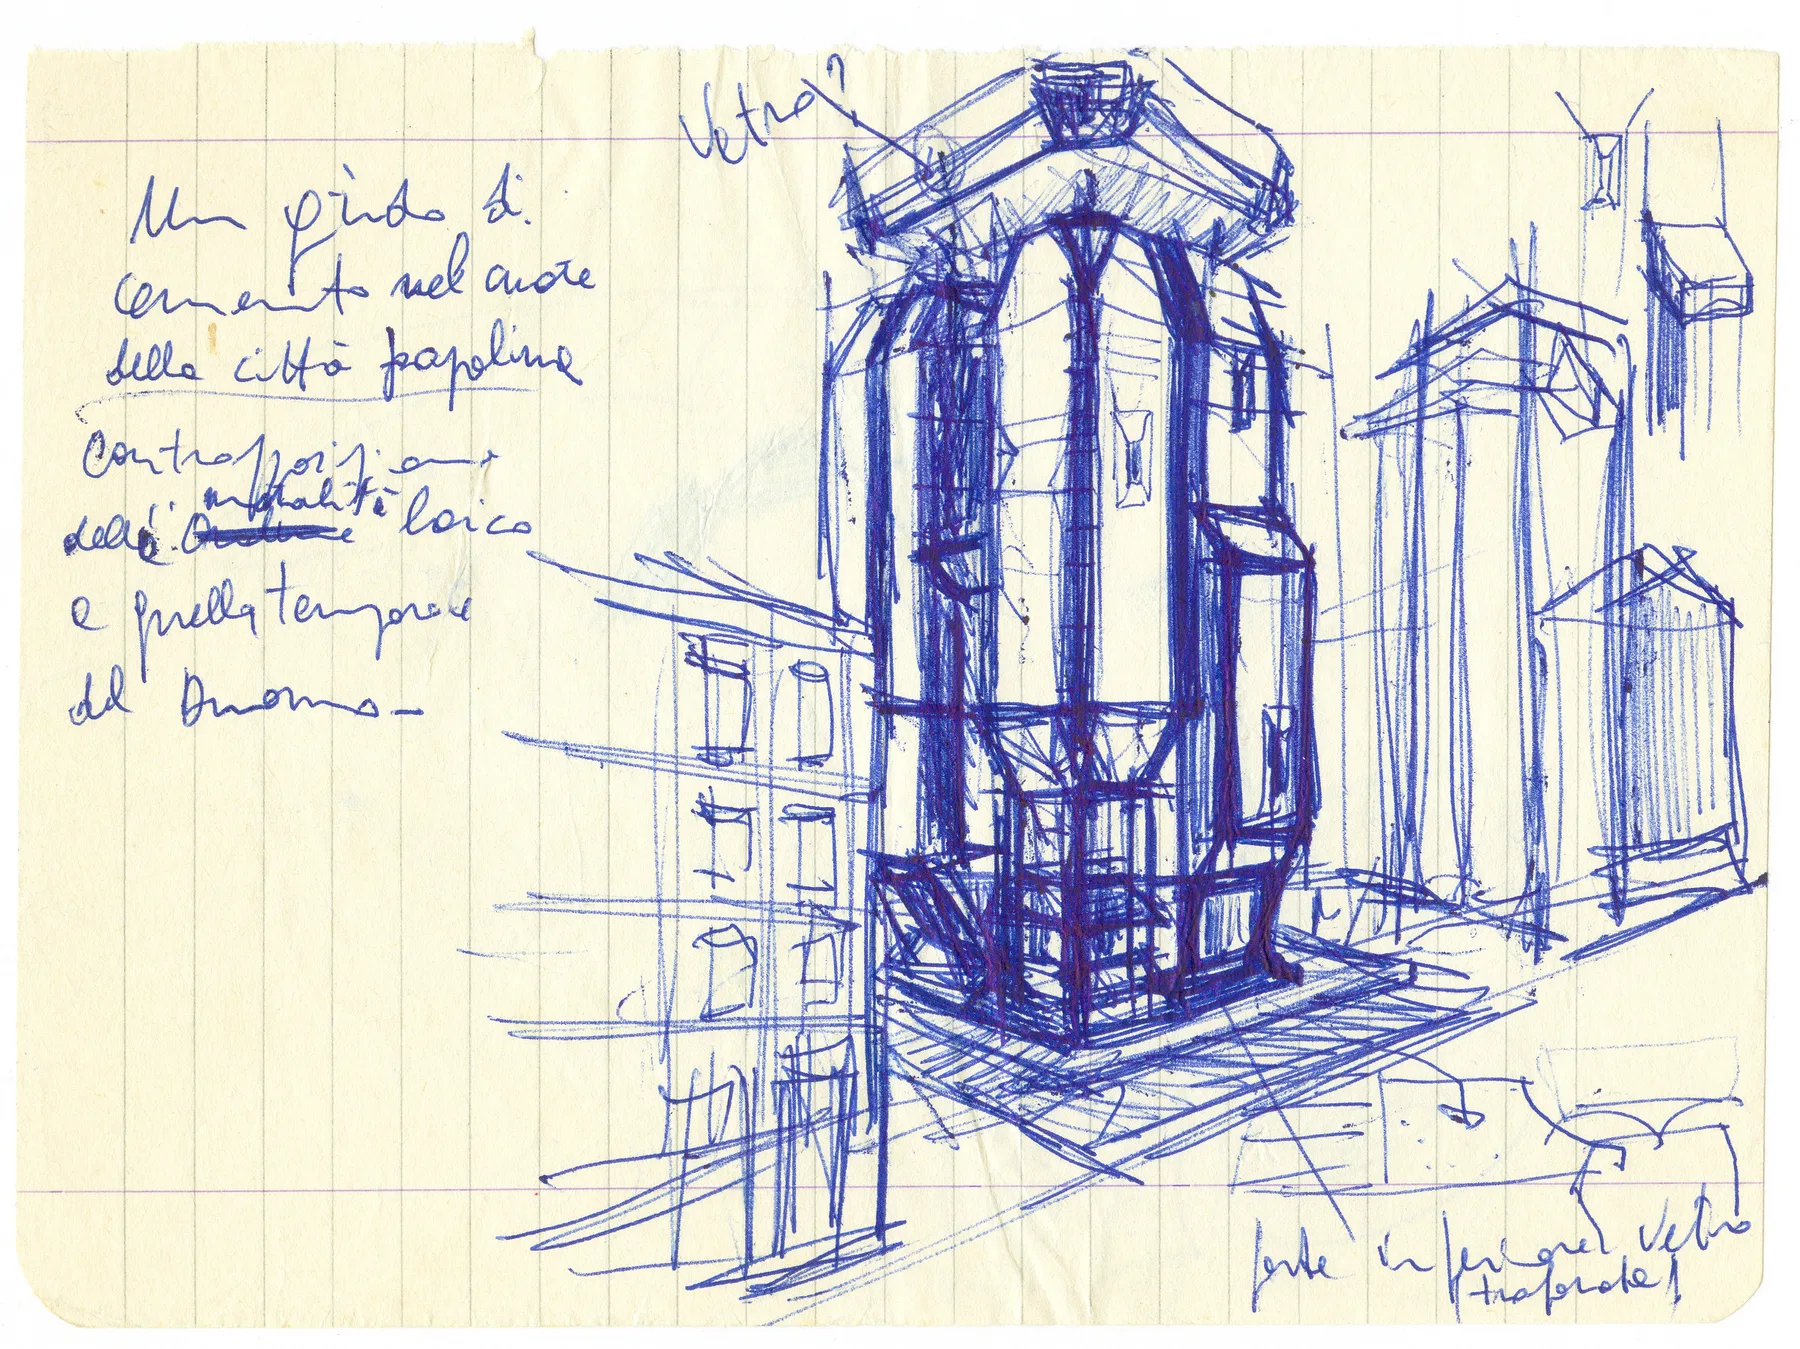 Vetro?
Un grido di
cemento nel cuore
della città
Contrapposizione
della laica
e quella temporale
del Duomo-
parte inferiore Vetro
traforate!